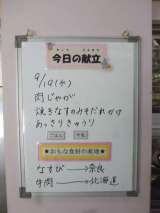 今日の献立
9/19(水)
肉じゃが
焼きなすのみそだれかけ
あっさりきゅうり
ごはん 牛乳
★おもな食材の産地★
なすび→奈良
牛肉→北海道